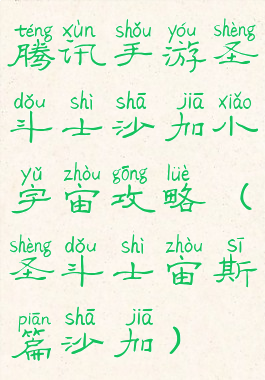 téng xùn shǒu yóu shèng
腾讯手游圣
dǒu shì shā jiā xiǎo
斗士沙加小
yǔ zhòu gōng lüè
宇宙攻略（
shèng dǒu shì zhòu sī
圣斗士宙斯
piān shā jiā
篇沙加）